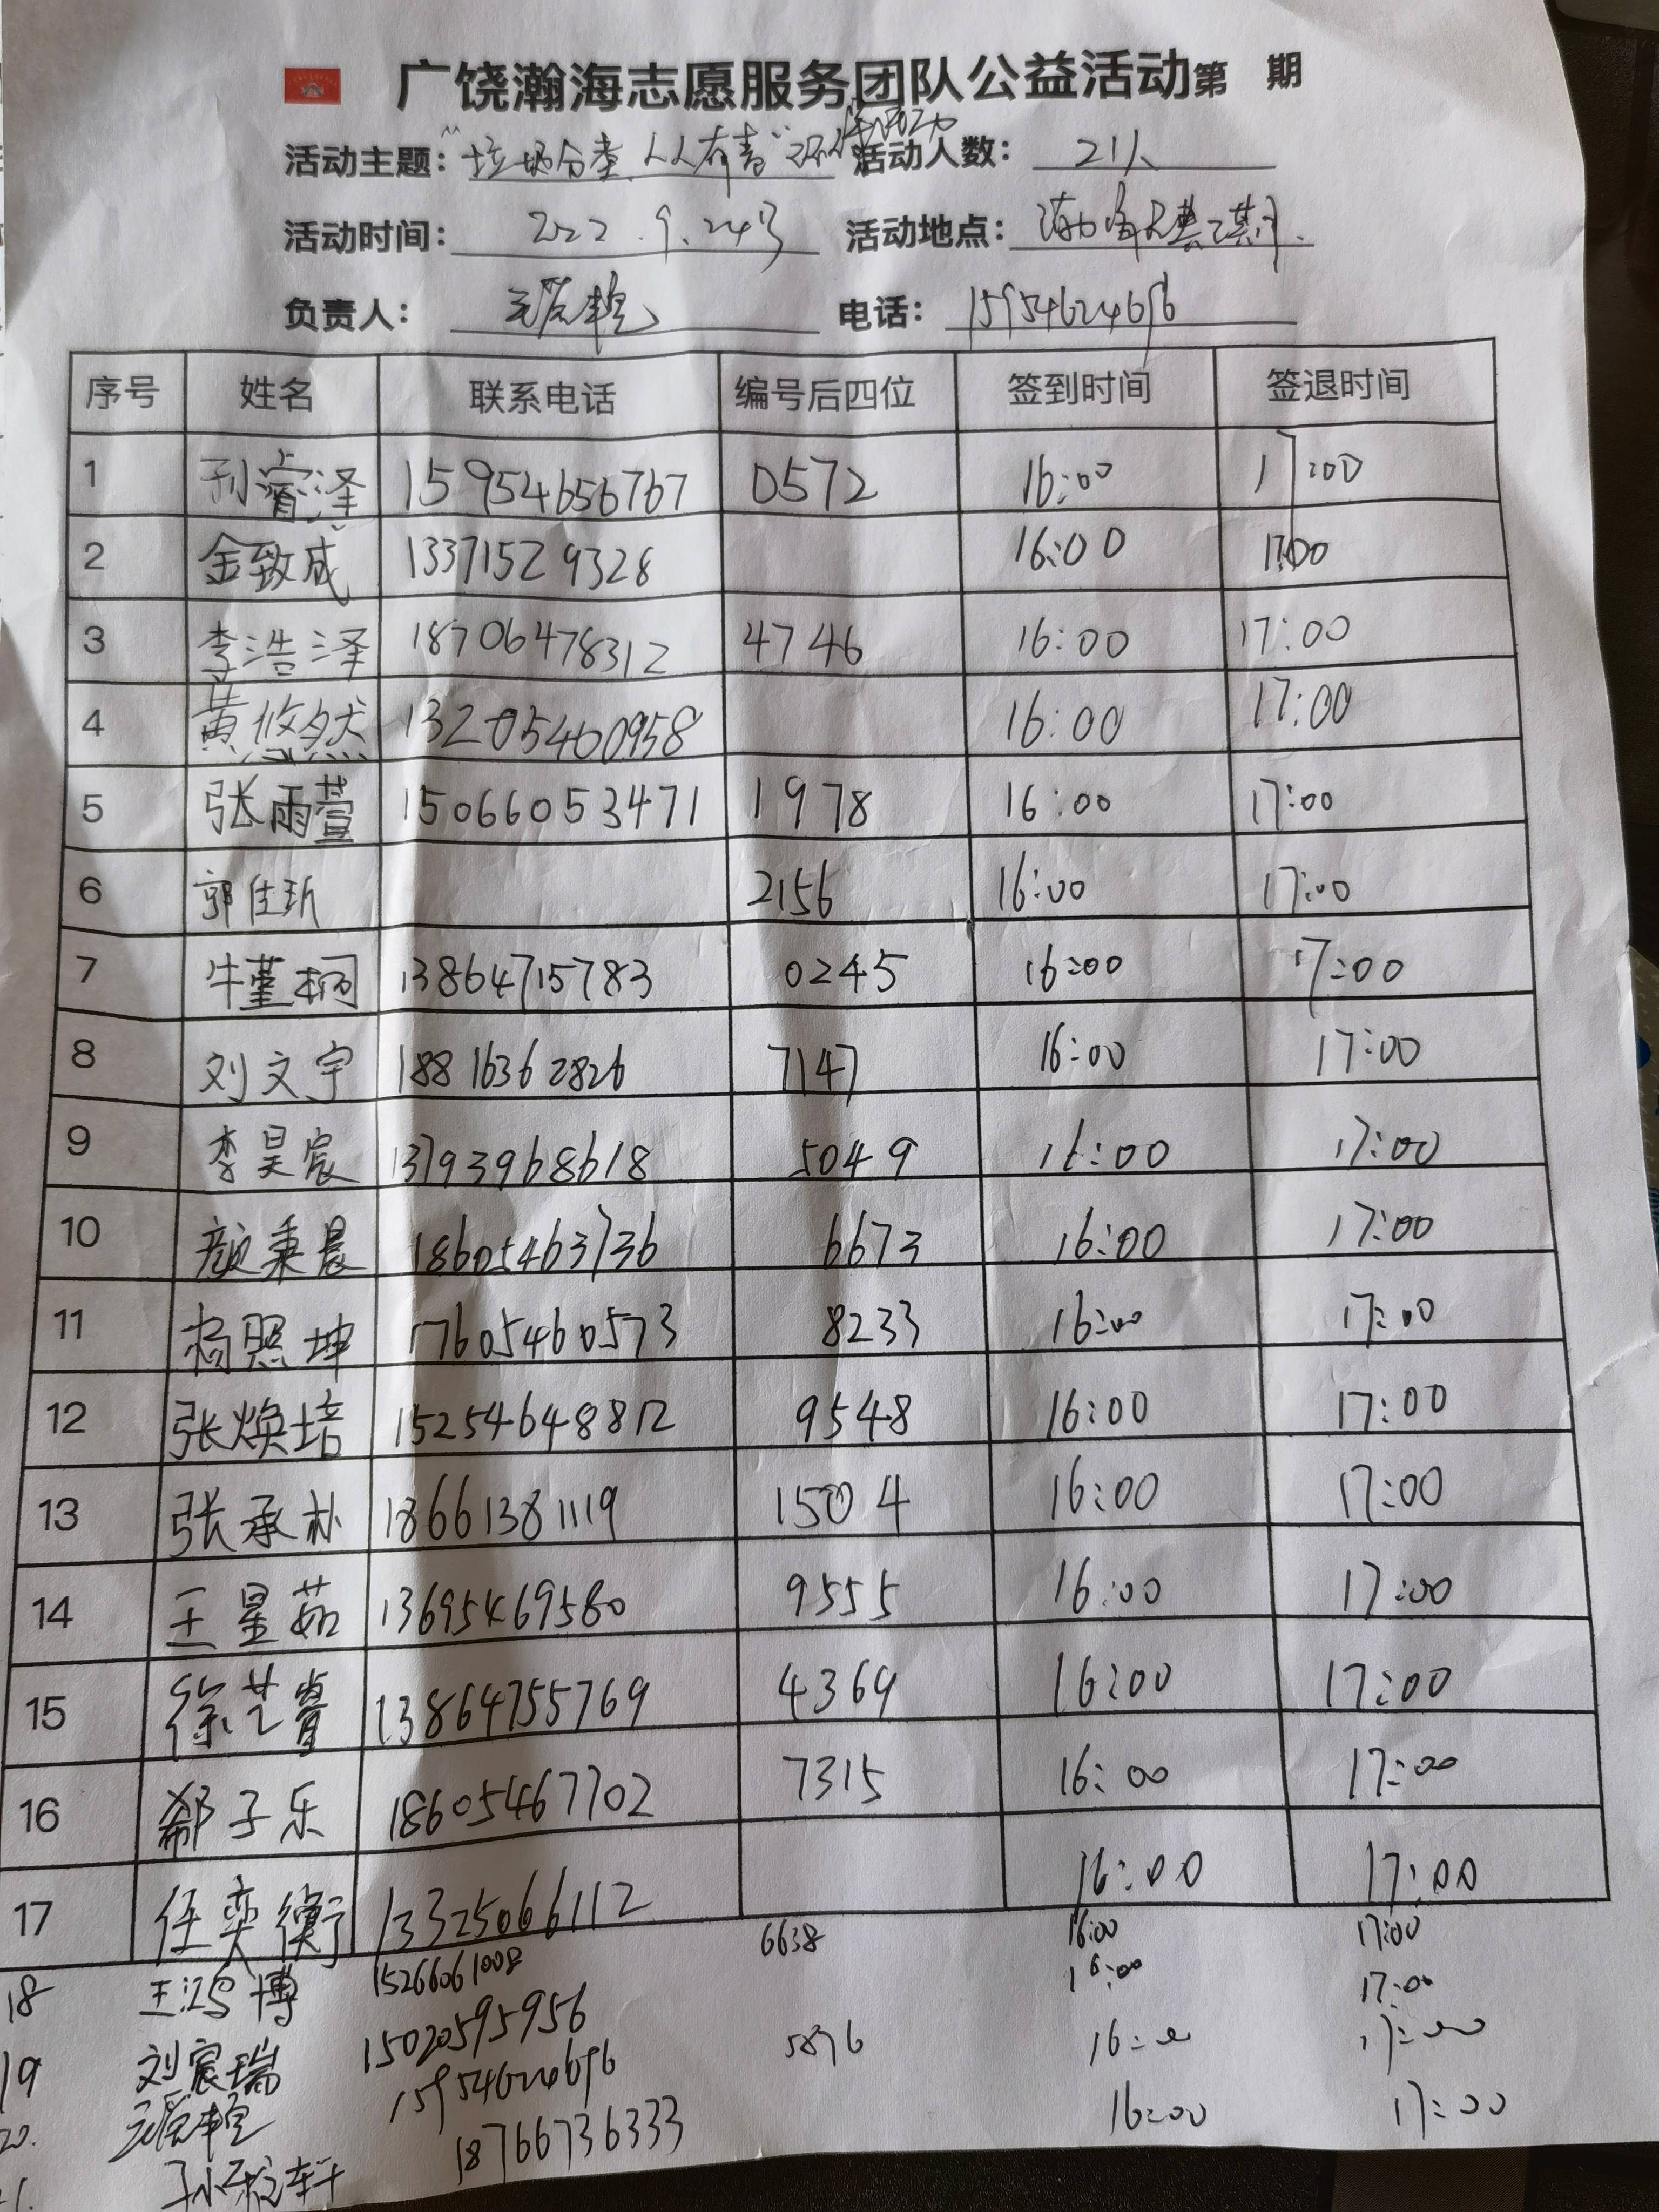 广饶瀚海志愿服务团队公益活动第 期
活动主题: "垃圾分类,人人有责" 活动人数: 21人
活动时间: 2022.9.24号 活动地点:
负责人: 电话: 15954624696
序号 姓名 联系电话 编号后四位 签到时间 签退时间
1 孙睿泽 15954656767 0572 16:00 17:00
2 金致成 13371529328 16:00 17:00
3 李浩泽 18706478312 4746 16:00 17:00
4 黄悠然 13205460958 16:00 17:00
5 张雨萱 15066053471 1978 16:00 17:00
6 郭佳昕 2156 16:00 17:00
7 牛堇桐 13864715783 0245 16:00 17:00
8 刘文宇 18816362826 7147 16:00 17:00
9 李昊宸 13793968618 5049 16:00 17:00
10 颜秉晨 18605463736 6673 16:00 17:00
11 杨照坤 17605460573 8233 16:00 17:00
12 张焕培 15254648812 9548 16:00 17:00
13 张承朴 18661381119 1504 16:00 17:00
14 王星茹 13695469580 9555 16:00 17:00
15 徐艺萱 13864755769 4369 16:00 17:00
16 郗子乐 18605467702 7315 16:00 17:00
17 任奕衡 13325066112 16:00 17:00
18 王鸿博 15266061008 6638 16:00 17:00
19 刘宸瑞 15020595956 16:00 17:00
20. 15954624696 5876 16:00 17:00
18766736333 16:00 17:00